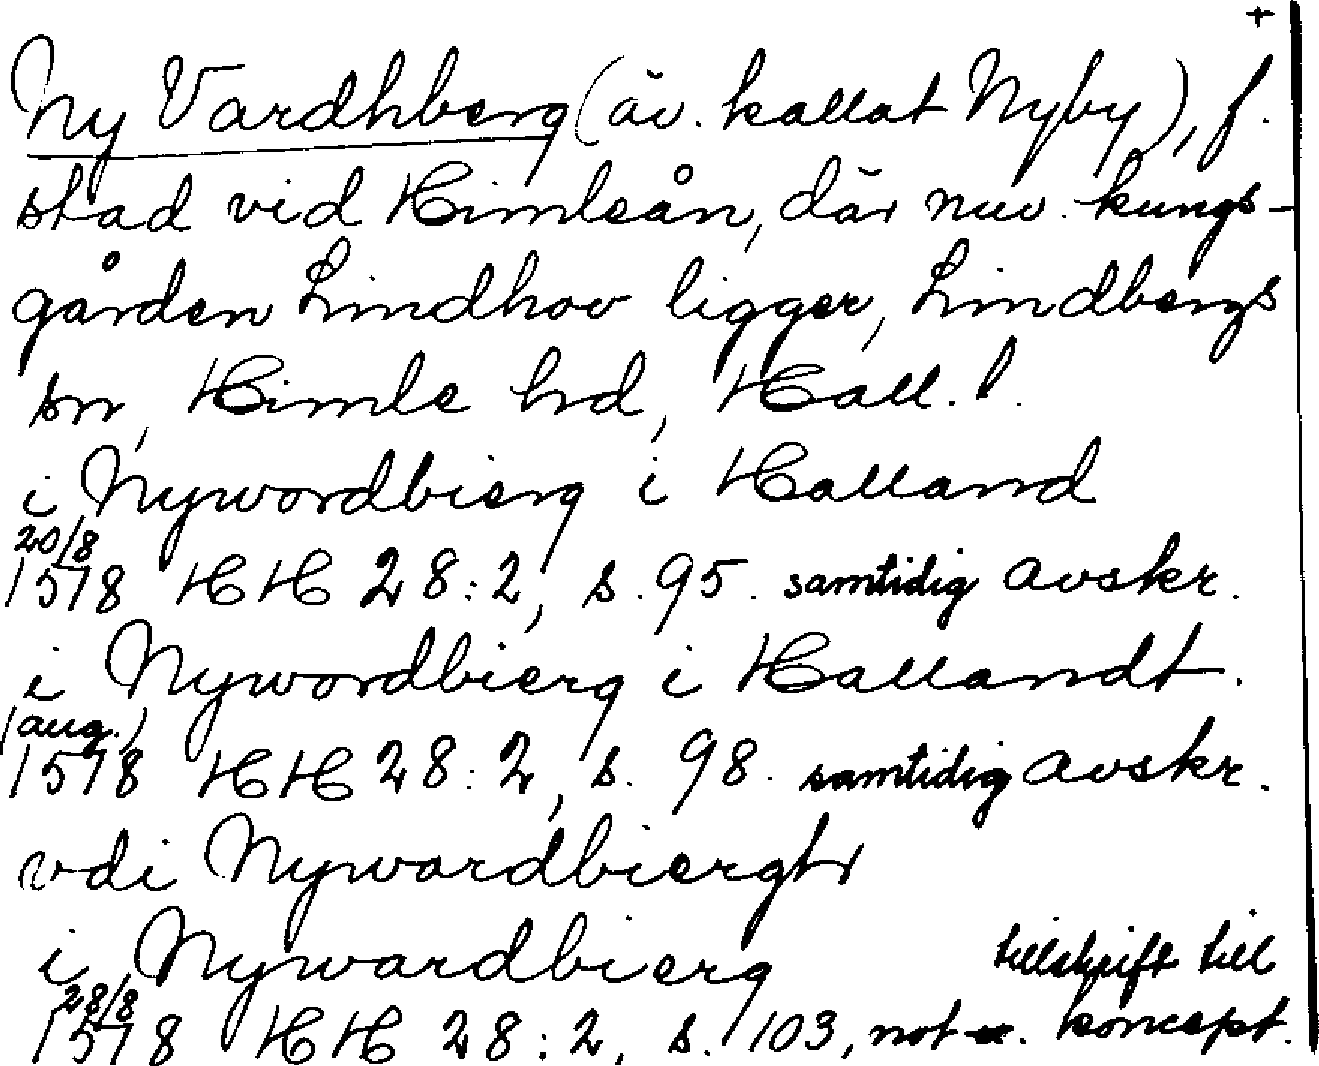 +
Ny Vardhberg (äv. kallat Nyby), f.
stad vid Himleån, där nuv. kungs-
gården Lindhov ligger, Lindbergs
sn, Himle hd, Hall. l.
i Nywordbierg i Halland
20/8
1578 HH 28:2, s. 95. samtidig avskr.
i Nywordbierg i Hallandt.
(aug.)
1578 HH 28:2, s. 98. samtidig avskr.
vdi Nywardbiergh
i Nywardbierg tillskrift till
28/8
1578 HH 28:2, s. 103, not koncept.